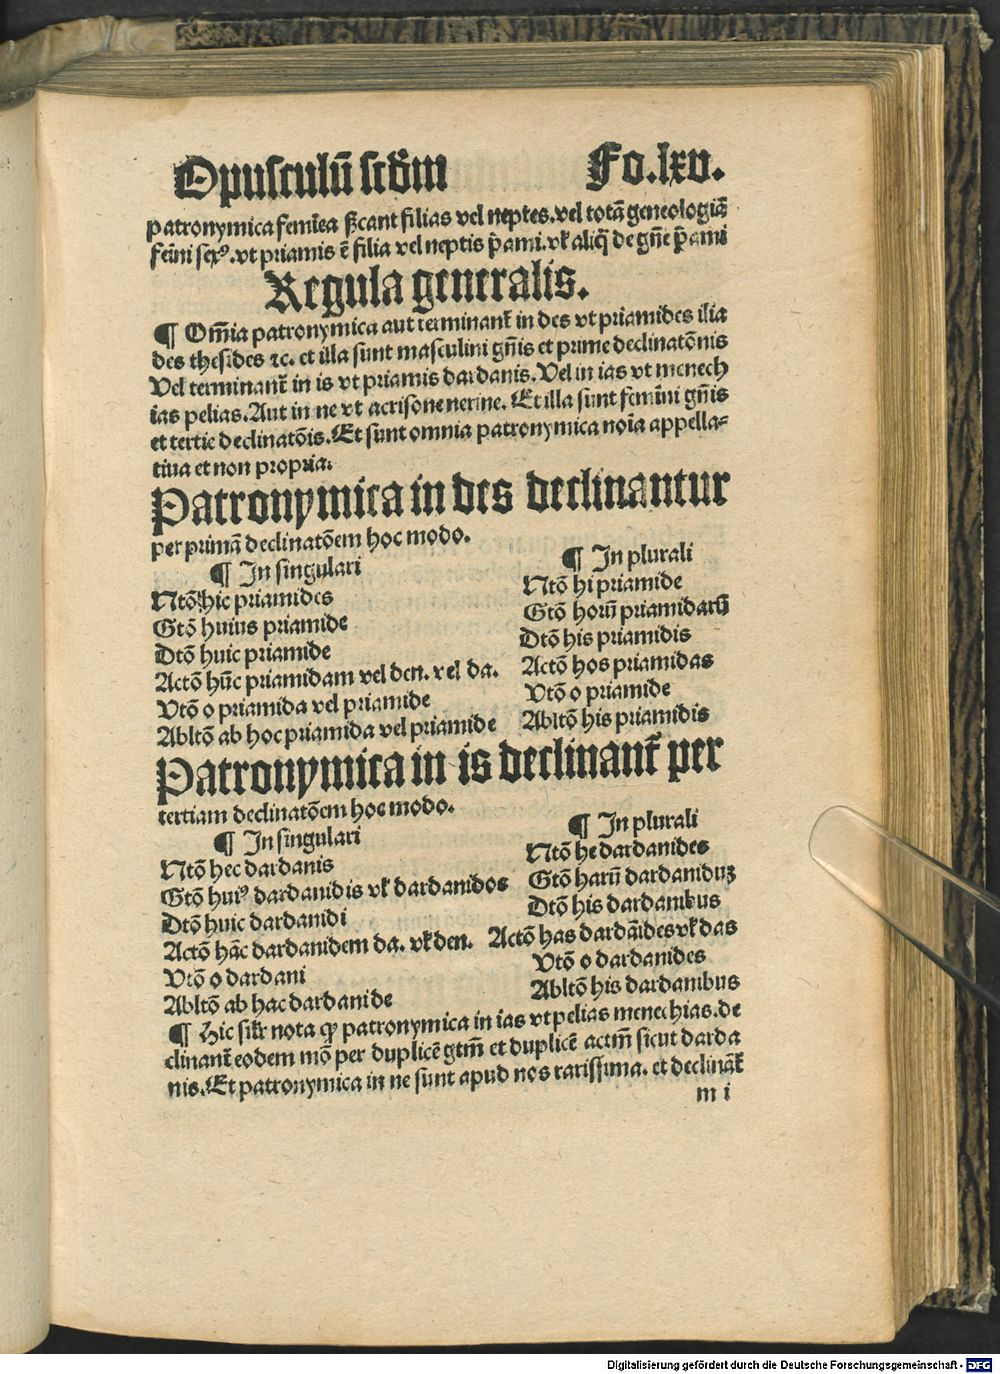 Opusculū scd̄m Fo.lxv.
patronymica femīea sῑcant filias vel neptes.vel totā geneologiā
femīni sexꝰ.vt priamis ē filia vel neptis p̄ami.vl̓ aliq̄ de gn̄e p̄ami
Regula generalis.
¶ Om̄ia patronymica aut terminant᷑ in des vt priamides ilia
des thesides ⁊c. et illa sunt masculini gn̄is et prime declinatōnis
Vel terminant᷑ in is vt priamis dardanis.Vel in ias vt menech
ias pelias.Aut in ne vt acrisone nerine. Et illa sunt femīni gn̄is
et tertie declinatōis.Et sunt omnia patronymica noīa appella-
tiua et non propria.
Patronymica in des declinantur
per primā declinatōem hoc modo.
¶ In singulari
Ntō hic priamides
Gtō huius priamide
Dtō huic priamide
Actō hūc priamidam vel den. vel da.
Vtō o priamida vel priamide
Abltō ab hoc priamida vel priamide
¶ In plurali
Ntō hi priamide
Gtō horū priamidarū
Dtō his priamidis
Actō hos priamidas
Vtō o priamide
Abltō his priamidis
Patronymica in is declinant᷑ per
tertiam declinatōem hoc modo.
¶ In singulari
Ntō hec dardanis
Gtō huiꝰ dardanidis vl̓ dardanidos
Dtō huic dardanidi
Actō hāc dardanidem da. vl̓ den.
Vtō o dardani
Abltō ab hac dardanide
¶ In plurali
Ntō he dardanides
Gtō harū dardaniduꝫ
Dtō his dardanibus
Actō has dardāides vl̓ das
Vtō o dardanides
Abltō his dardanibus
¶ Hic silr̄ nota ꝙ patronymica in ias vt pelias menechias.de
clinant᷑ eodem mō per duplicē gtm̄ et duplicē actm̄ sicut darda
nis.Et patronymica in ne sunt apud nos rarissima. et declināt᷑
m i
Digitalisierung gefördert durch die Deutsche Forschungsgemeinschaft - DFG